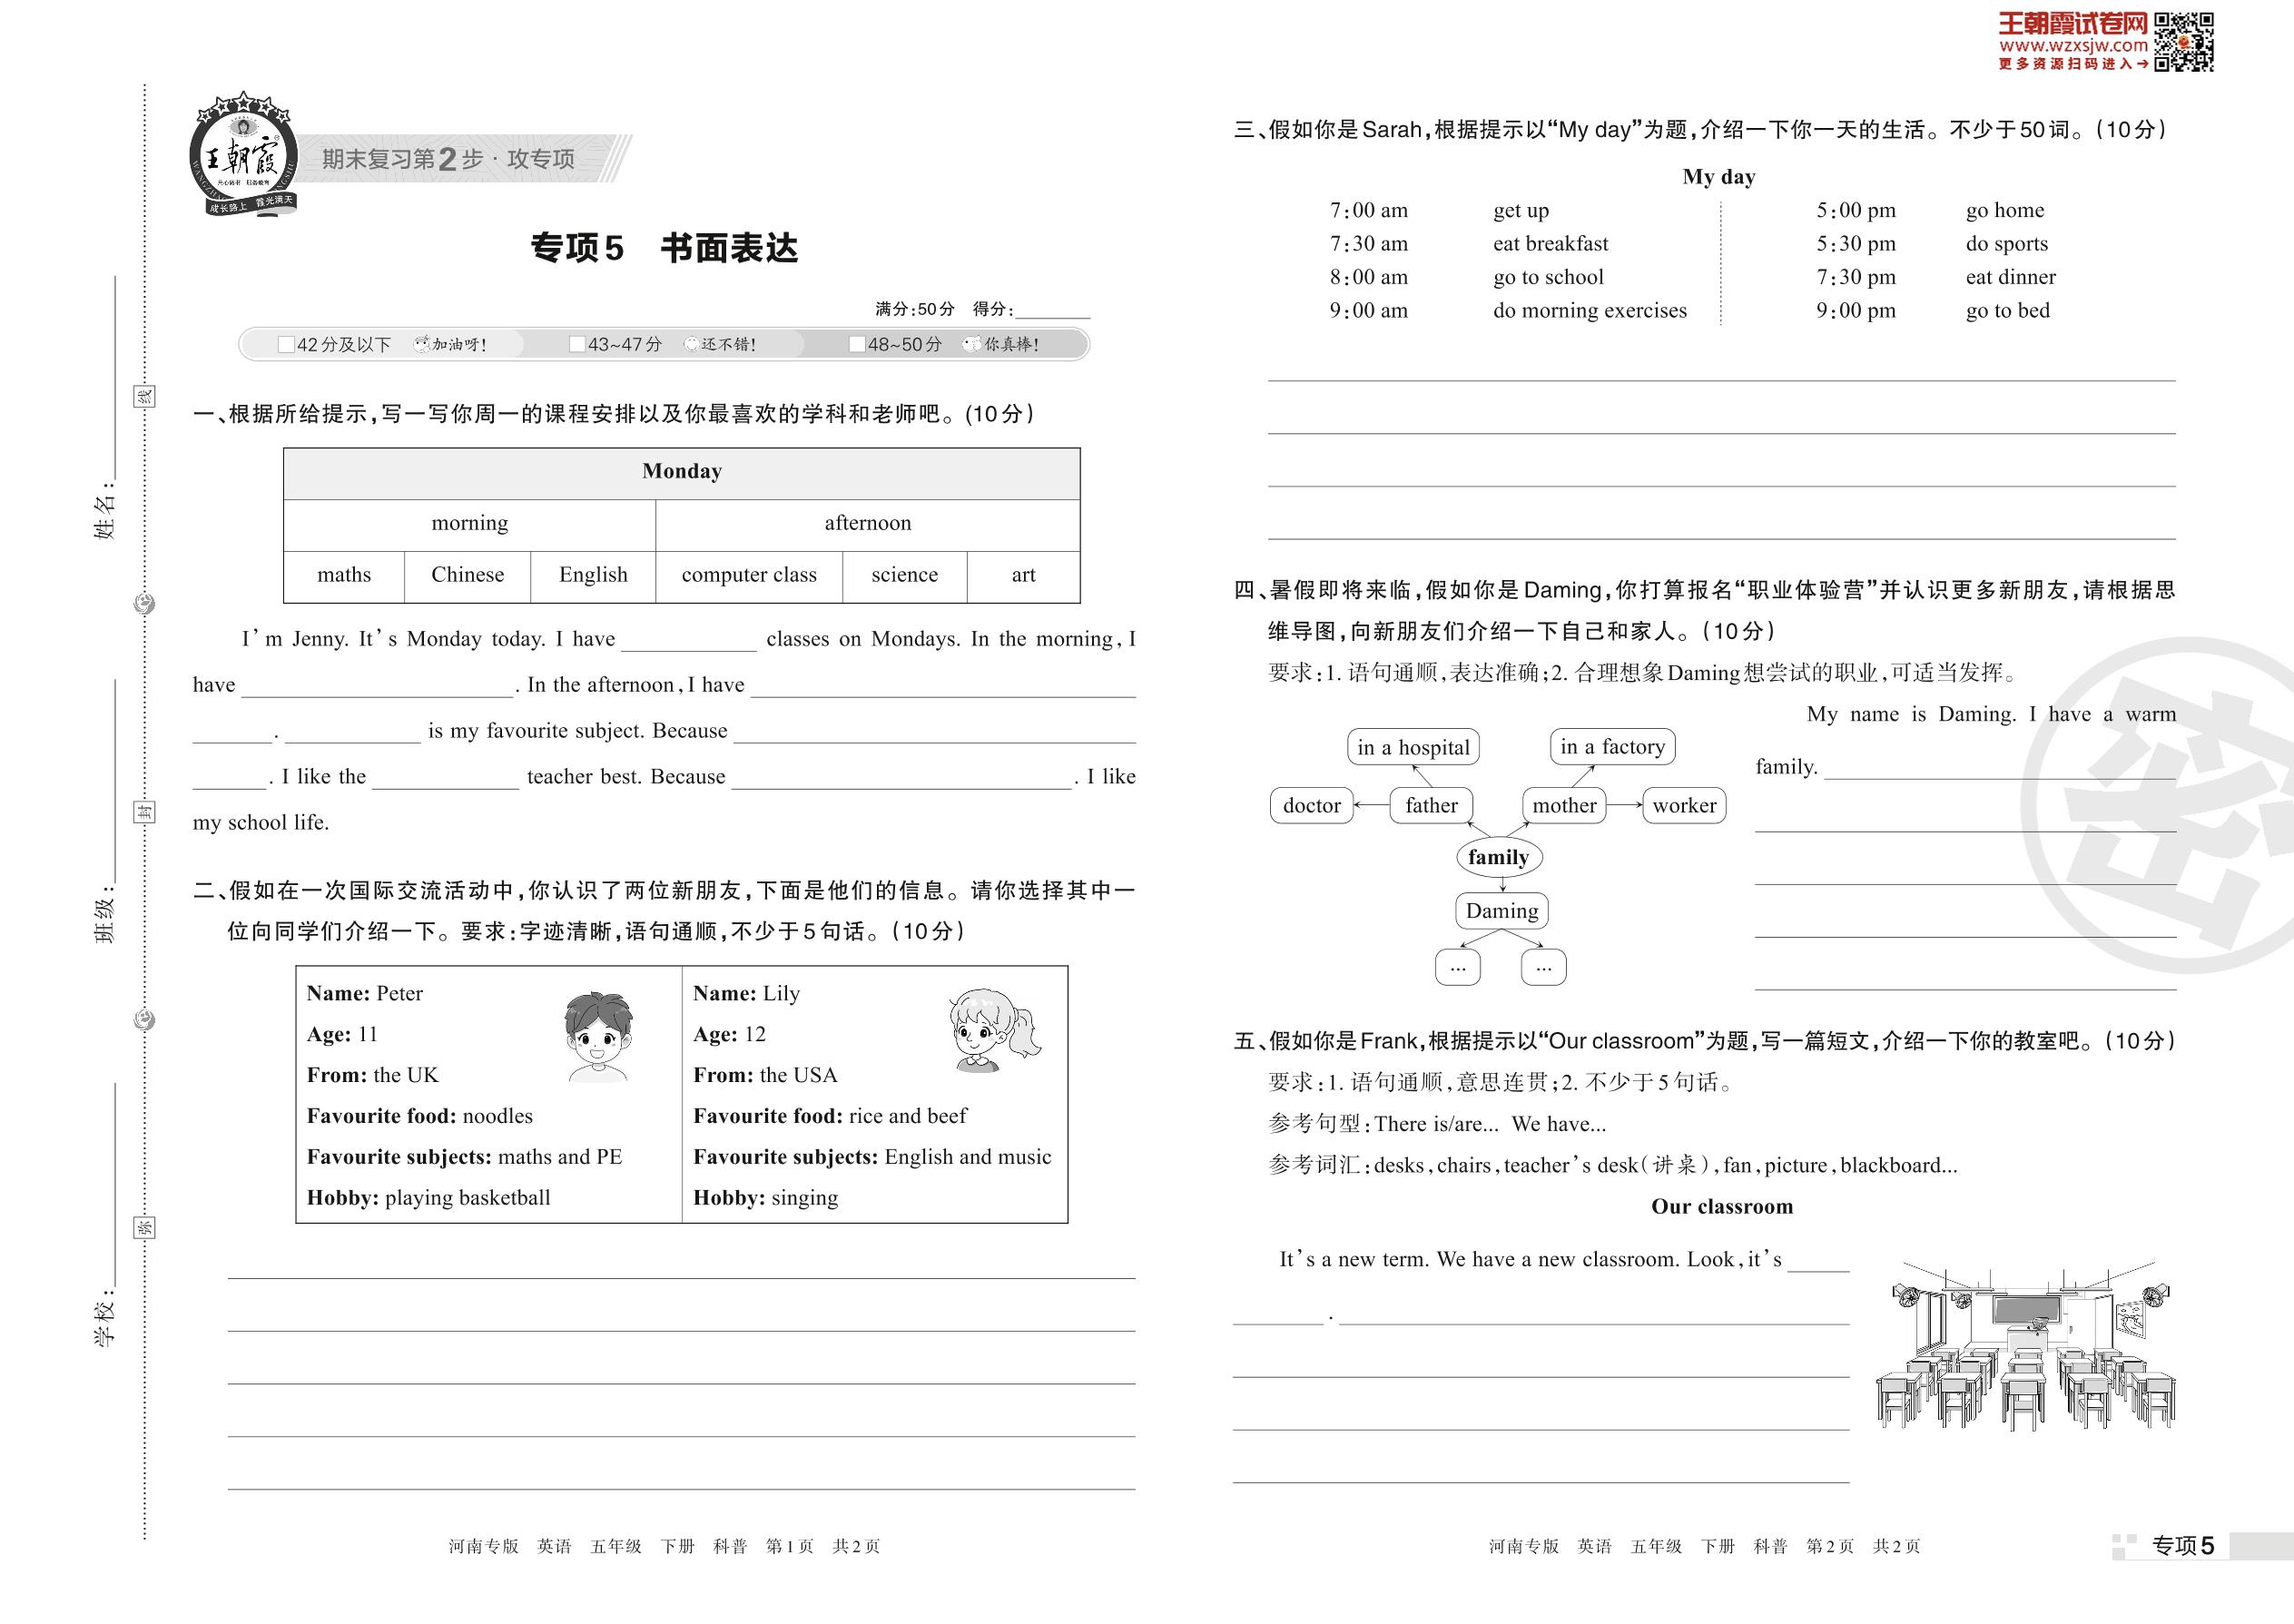 王朝霞试卷网
www.wzxsjw.com
更多资源扫码进入→
王朝霞
成长路上 霞光满天
期末复习第2步·攻专项
专项5 书面表达
满分:50分 得分:
42分及以下 加油呀!
43~47分 还不错!
48~50分 你真棒!
姓名:
班级:
学校:
线
封
弥
一、根据所给提示,写一写你周一的课程安排以及你最喜欢的学科和老师吧。(10分)
Monday
morning afternoon
maths Chinese English computer class science art
I’m Jenny. It’s Monday today. I have ________ classes on Mondays. In the morning, I
have ________. In the afternoon, I have ________
________. ________ is my favourite subject. Because ________
________. I like the ________ teacher best. Because ________. I like
my school life.
二、假如在一次国际交流活动中,你认识了两位新朋友,下面是他们的信息。请你选择其中一
位向同学们介绍一下。要求:字迹清晰,语句通顺,不少于5句话。(10分)
Name: Peter
Age: 11
From: the UK
Favourite food: noodles
Favourite subjects: maths and PE
Hobby: playing basketball
Name: Lily
Age: 12
From: the USA
Favourite food: rice and beef
Favourite subjects: English and music
Hobby: singing
河南专版 英语 五年级 下册 科普 第1页 共2页
三、假如你是Sarah,根据提示以“My day”为题,介绍一下你一天的生活。不少于50词。(10分)
My day
7:00 am get up 5:00 pm go home
7:30 am eat breakfast 5:30 pm do sports
8:00 am go to school 7:30 pm eat dinner
9:00 am do morning exercises 9:00 pm go to bed
四、暑假即将来临,假如你是Daming,你打算报名“职业体验营”并认识更多新朋友,请根据思
维导图,向新朋友们介绍一下自己和家人。(10分)
要求:1. 语句通顺,表达准确;2. 合理想象Daming想尝试的职业,可适当发挥。
in a hospital in a factory
doctor father mother worker
family
Daming
... ...
My name is Daming. I have a warm
family.
密
五、假如你是Frank,根据提示以“Our classroom”为题,写一篇短文,介绍一下你的教室吧。(10分)
要求:1. 语句通顺,意思连贯;2. 不少于5句话。
参考句型:There is/are... We have...
参考词汇:desks, chairs, teacher’s desk(讲桌), fan, picture, blackboard...
Our classroom
It’s a new term. We have a new classroom. Look, it’s ________
________.
河南专版 英语 五年级 下册 科普 第2页 共2页
专项5